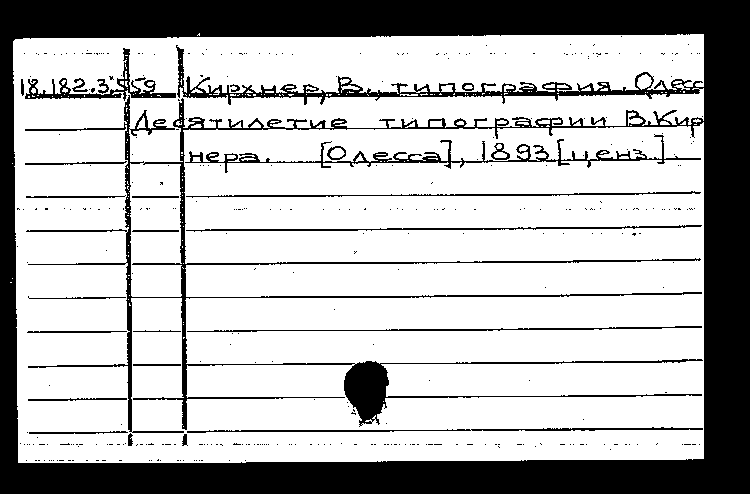 18.182.3.559 Кирхнер, В., типография. Одесс
Десятилетие типографии В.Кир
нера. [Одесса], 1893 [ценз.].